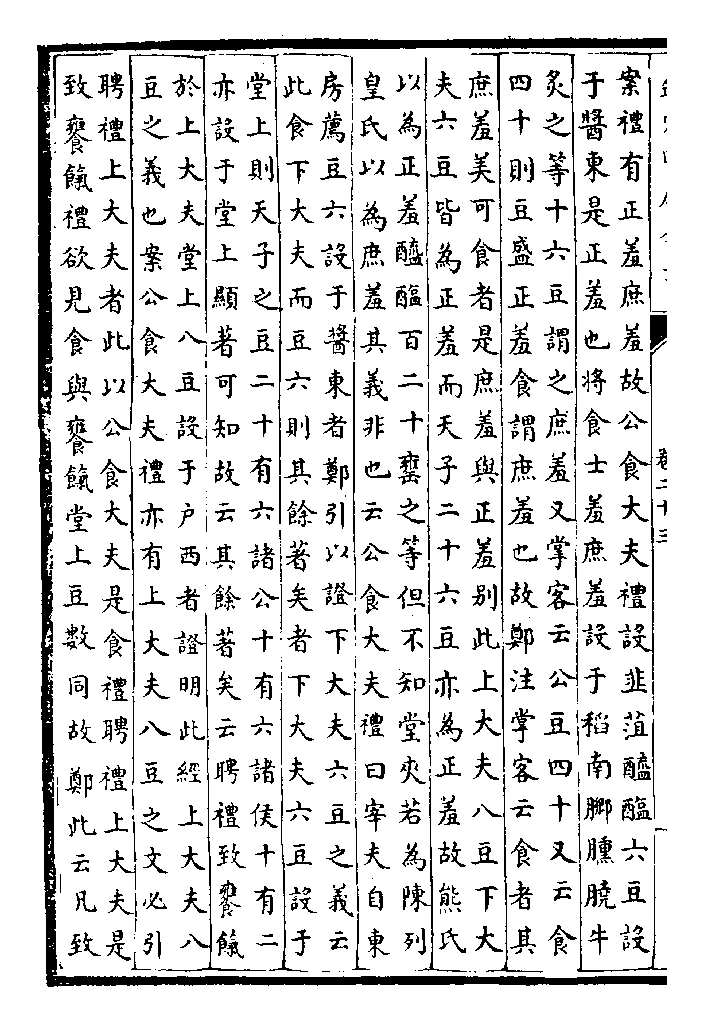 卷二十三
案禮有正羞庶羞故公食大夫禮設韭菹醯醢六豆設
于醬東是正羞也將食士羞庶羞設于稻南膷臐膮牛
炙之等十六豆謂之庶羞又掌客云公豆四十又云食
四十則豆盛正羞食謂庶羞也故鄭注掌客云食者其
庶羞美可食者是庶羞與正羞別此上大夫八豆下大
夫六豆皆為正羞而天子二十六豆亦為正羞故熊氏
以為正羞醯醢百二十罋之等但不知堂夾若為陳列
皇氏以為庶羞其義非也云公食大夫禮曰宰夫自東
房薦豆六設于醬東者鄭引以證下大夫六豆之義云
此食下大夫而豆六則其餘著矣者下大夫六豆設于
堂上則天子之豆二十有六諸公十有六諸侯十有二
亦設于堂上顯著可知故云其餘著矣云聘禮致饔餼
於上大夫堂上八豆設于戶西者證明此經上大夫八
豆之義也案公食大夫禮亦有上大夫八豆之文必引
聘禮上大夫者此以公食大夫是食禮聘禮上大夫是
致饔餼禮欲見食與饔餼堂上豆數同故鄭此云凡致